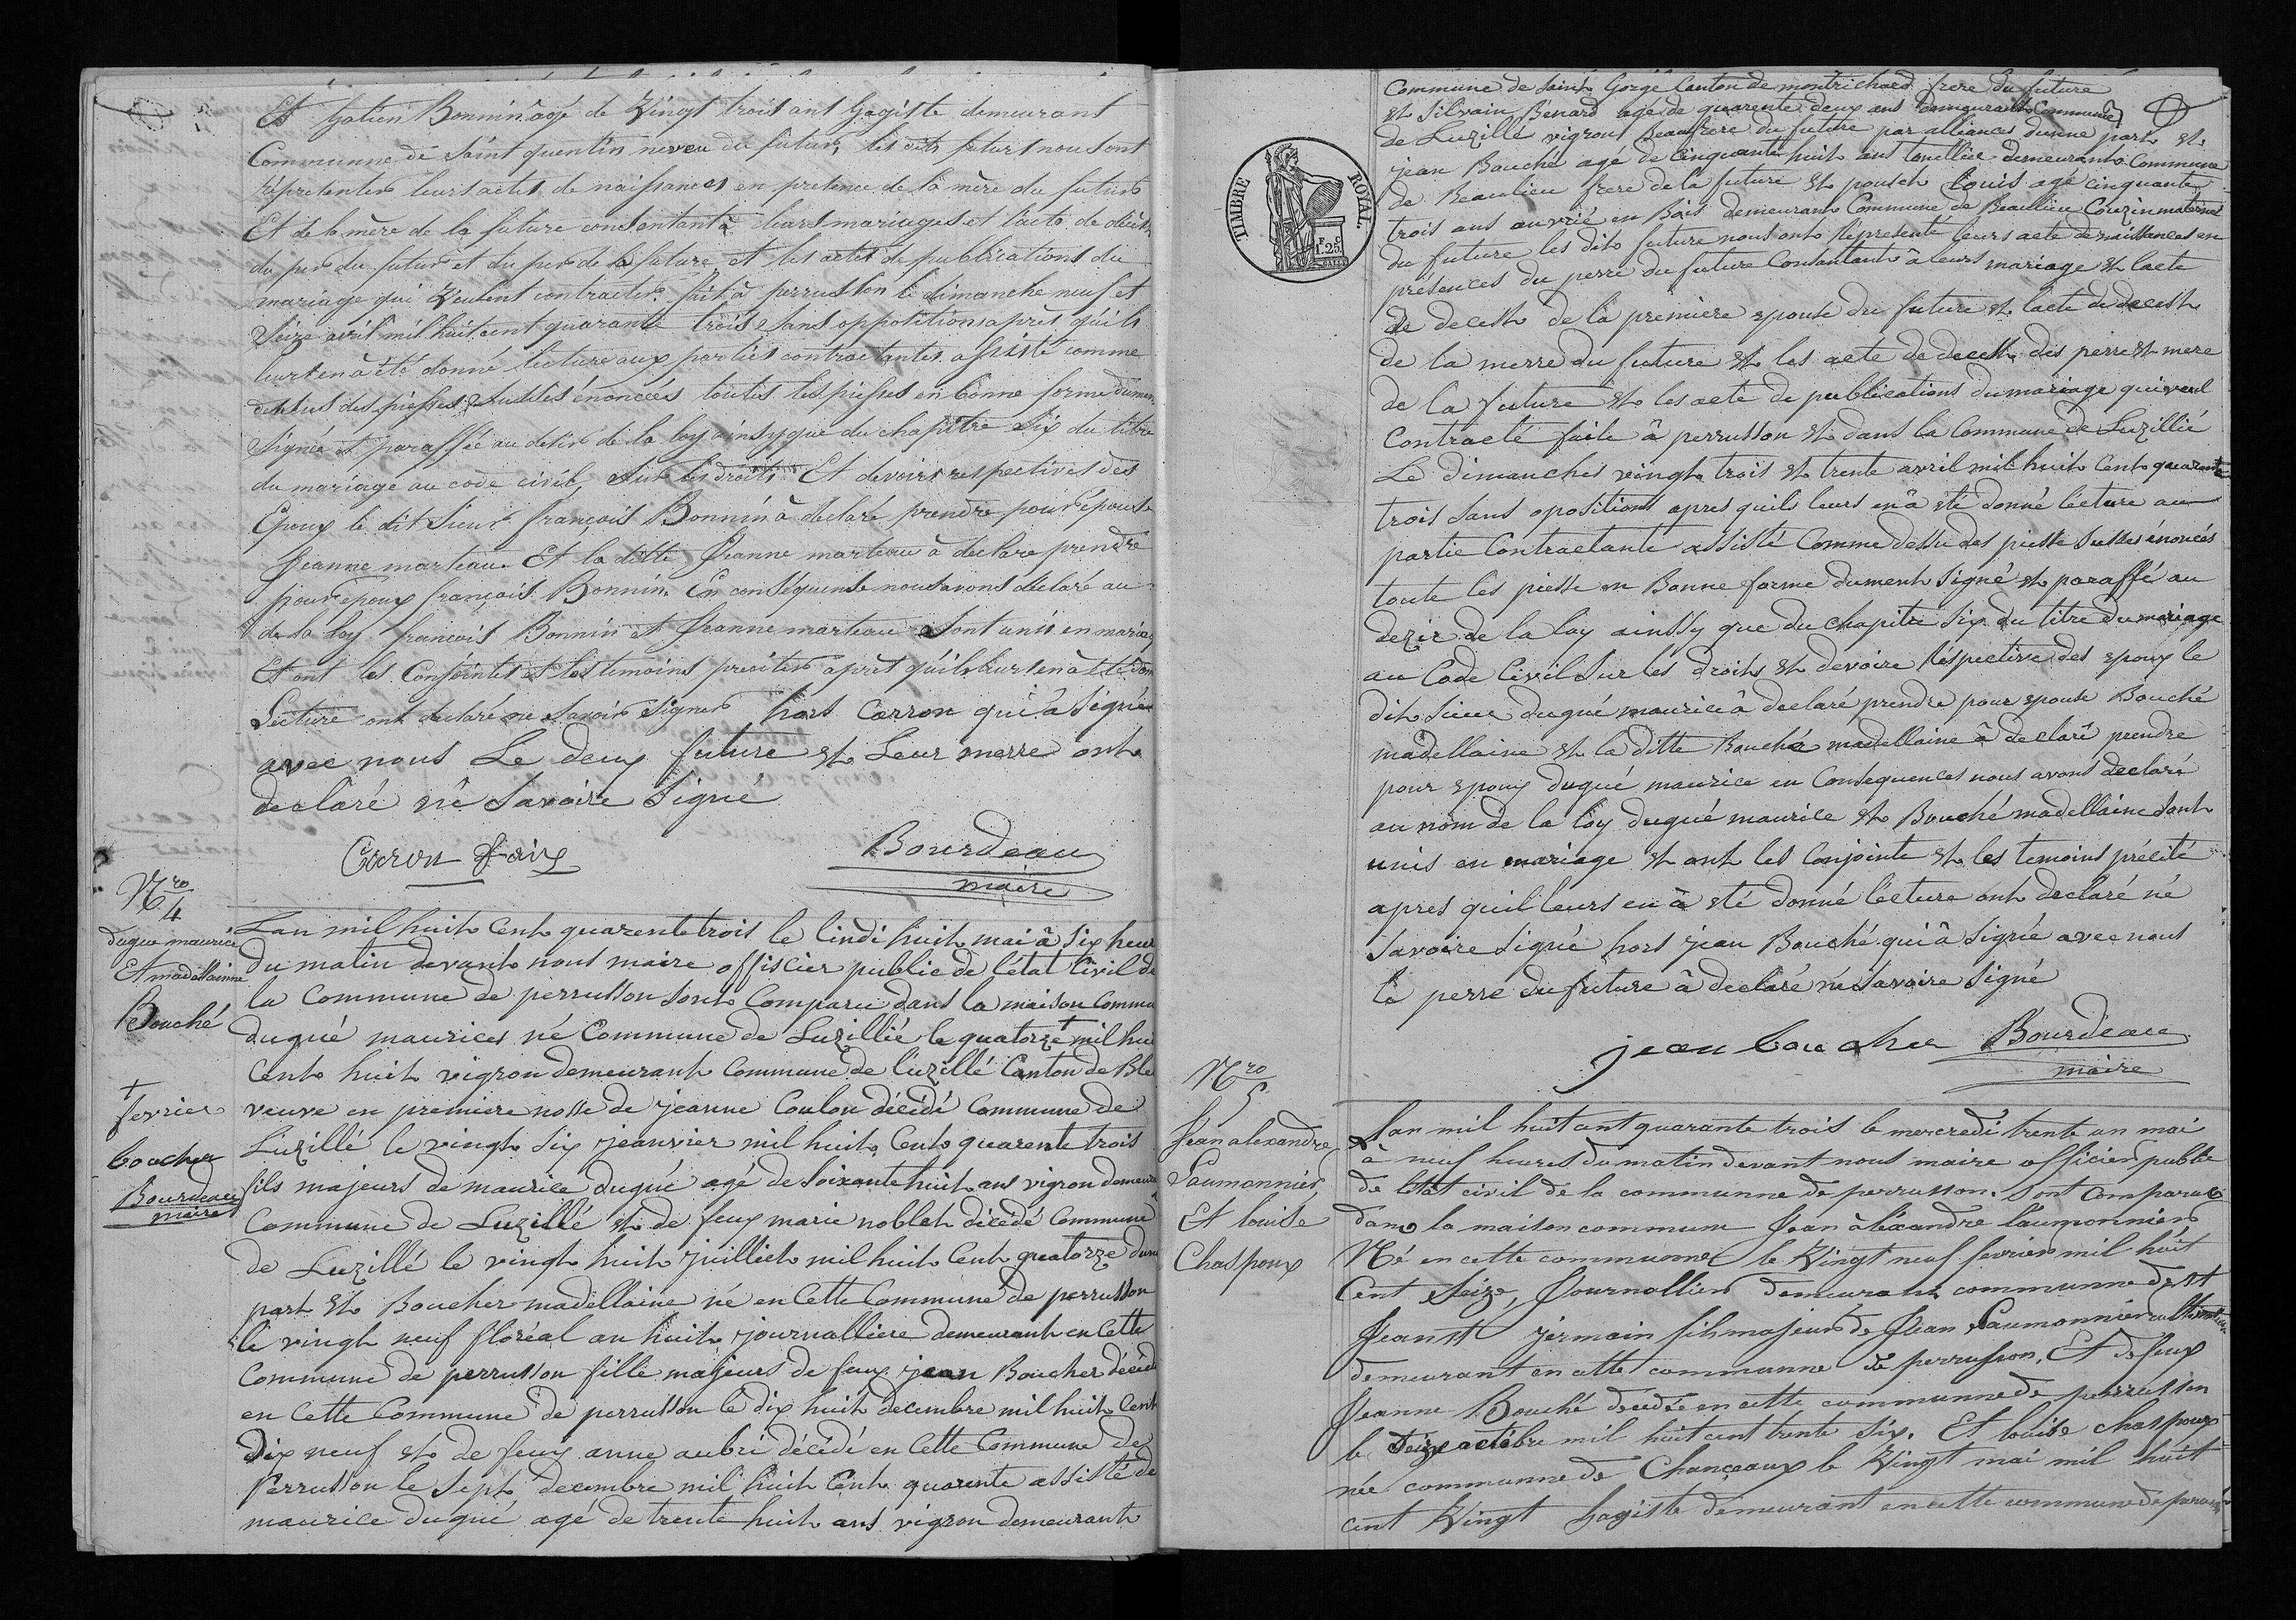 Et Gatien Bonnin âgé de Vingt trois ans Gagiste demeurant
Communne de saint quentin neveu du futur, les dits futurs nous ont
répresenter leurs actes de naissances en presence de la mère du futur
Et de la mère de la future consentant à leurs mariages et l'acte de décès
du per du futur et du per de la future et les actes de publications du
mariage qui Veulent contracter fait à perrusson le dimanche neuf et
seize avril mil huit cent quarante trois sans oppositions après qu'ils
leurs en à été donné lecture aux parties contractantes assisté comme
dessus des piesses susdités énoncées toutes les piesses en bonne forme dumen
signée et paraffée au desir de la loy ainsy que du chapitre six du titre
du mariage au code civil, sur les droits Et devoirs respectives des
Epoux le dit sieur françois Bonnin à déclaré prendre pour épouse
Jeanne marteau. Et la ditte Jeanne marteau à déclare prendre
pour époux françois Bonnin. En conséquense nous avons déclaré au
de la loy françois Bonnin et Jeanne marteau sont unis en mariag
Et ont les Conjointes et les temoins precites après qu'il leurs en à été don
Lecture ont declaré ne savoir signer hors Carron qui à signée
avec nous Le deux future et Leur merre ont
declaré nê savoire signé
Caron
Bourdeau
maire
Nro
4
dugué maurice
Et madellainne
Bouché
Lan mil huit Cent quarente trois le lindi huit mai à six heur
du matin devant nous maire offiscier public de l'état Civil de
la Commune de perrusson sont Comparu dans la maison Commu
dugué maurices né Commune de Luzillié le quatorze + mil hui
Cent huit vigron demeurant Commune de luzillé Canton de Ble
veuve en premiere nosse de jeanne Coulon décédé Commune de
Luzillé le vingt six jeanvier mil huit Cent quarente trois
fils majeurs de maurice dugué agé de soixante huit ans vigron demeura
Commune de Luzillé et de feux marie noblet décédé Commune
de Luzillé le vingt huit juilliet mil huit Cent quatorze dune
part et Boucher madellaine né en Cette Commune de perrusson
le vingt neuf floréal an huit journalliere demeurant en Cette
Commune de perrusson fille majeurs de feux jean Boucher décéd
en Cette Commune de perrusson le dix huit decembre mil huit Cent
Dix neuf et de feux anne aubri décédé en Cette Commune de
Perrusson le sept decembre mil huit Cent quarente assisté de
maurice dugué agé de trente huit ans vigron demeurant
+
fevrier
boucher
Bourdeau
maire
TIMBRE ROYAL
1F.25c
Commune de saint Gorge Canton de montrichard frere du future
et silvain Bénard agé de quarente deux ans demeurant Commune
de Luzillé vigron Beaufrere du future par alliances dunne part et
jean Bouché agé de Cinquante huit ans tonellier demeurant Commune
de Beaulieu frere de la future et pousch Louis agé cinquante
trois ans ouvrié en Bois demeurant Commune de Beaullieu Couzin maternel
du future les dits future nous ont Répresenté leurs acte de naissances en
présences du perre du future Consantant à leurs mariage et lacte
de decesst de la premiere epouse du future et lacte de decesst
de la merre du future et les acte de decesst des perre et mere
de la future et les acte de publications du mariage qui veul
Contracté faite à perrusson et dans la Commune de Luzillié
Le dimanches vingt trois et trente avril mil huit Cent quarante
trois sans opositions apres quils leurs en à été donné lécture au
partie Contractante assisté Comme dessu des piesse susdés énoncés
toute les piesse en Bonne forme dument signé et paraffé au
dezir de la loy ainssy que du chapitre six du titre du mariage
au Code Civil sur les droits et devoire Réspective des epoux le
dit sieur dugué maurice à declaré prendre pour epouse Bouché
madellaine et la ditte Bouché madellaine à declaré prendre
pour epoux dugué maurice en Consequences nous avons declaré
au nom de la loy dugué maurice et Bouché madellaine sont
unis en mariage et ont les Conjointe et les temoins précité
apres quil leurs en à été donné lécture ont declaré né
savoire signié hors jean Bouché qui à signié avec nous
le perre du future à declaré né savoire signé
jean boucher
Bourdeau
maire
Nro
5
Jean alexandre
Laumonnier
Et louise
Chaspoux
Lan mil huit cent quarante trois le mercredi trente un mai
à neuf heures du matin devant nous maire officier public
de létat civil de la communne de perrusson. sont Comparus
dans la maison commune Jean àléxandre laumonnier,
Né en cette communne le Vingt neuf fevrier mil huit
Cent Seize, Journallier demeurant communne de st
Jean st jermain fils majeur de Jean Laumonnier cultivateur
demeurant en cette communne de perrusson. Et de feux
Jeanne Bouché décédée en cette communne de perrusson
le seize octobre mil huit cent trente six. Et louise chaspoux
née communne de Chanceaux le Vingt mai mil huit
cent Vingt Gagiste demeurant en cette commune de perruss